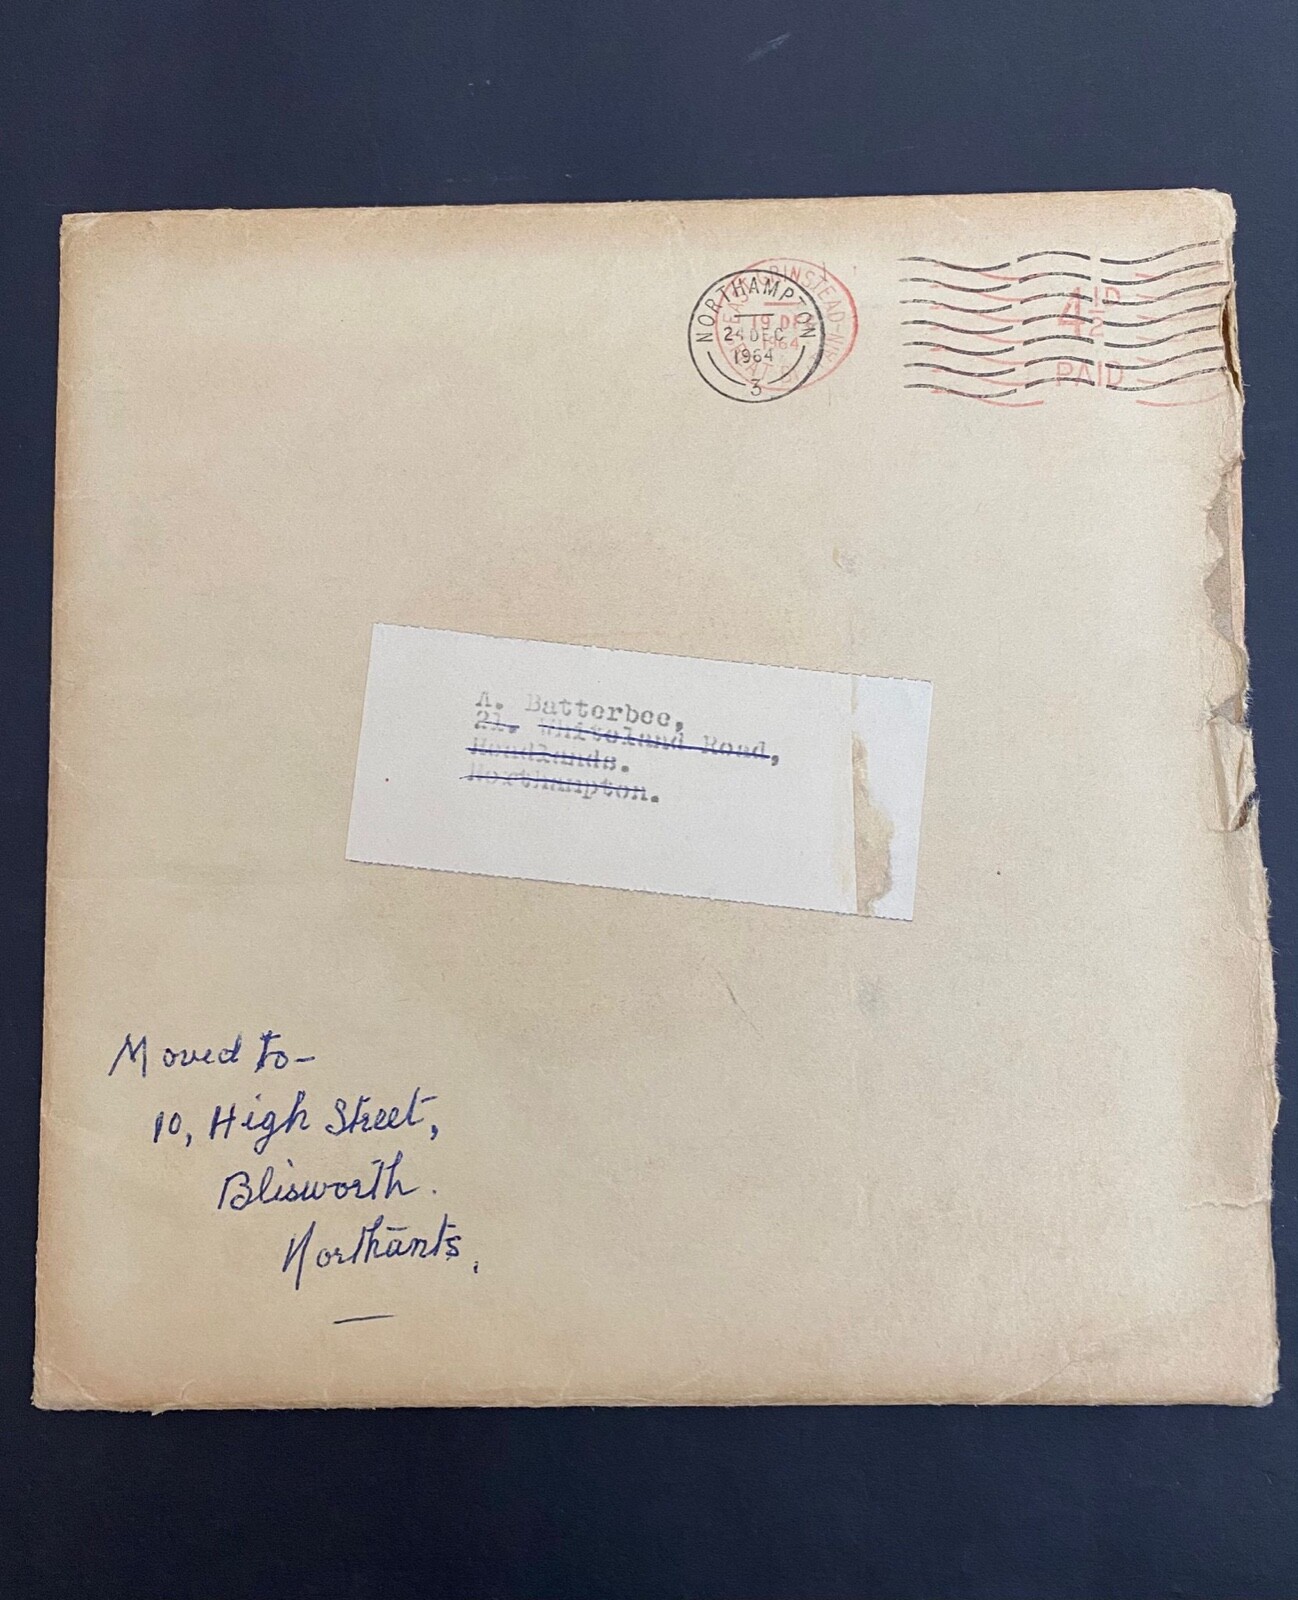 NORTHAMPTON
24 DEC
1964
3
EAST GRINSTEAD
19 DE
1964
GREAT BRITAIN
4½D
PAID
A. Batterbee,
21. Whiteland Road,
Headlands.
Northampton.
Moved to-
10, High Street,
Blisworth.
Northants.